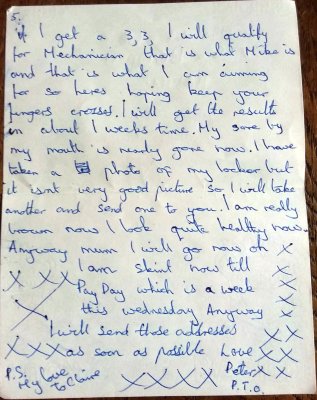 5.
if I get a 3,3, I will qualify
for Mechanician that is what Mike is
and that is what I am aiming
for so heres hoping keep your
fingers crosses. I will get the results
in about 1 weeks time. My sore by
my mouth is nearly gone now. I have
taken a photo of my locker but
it isnt very good picture so I will take
another and send one to you. I am really
brown now I look quite healthy now.
Anyway mum I will go now oh X
X X X I am skint now till X
Pay Day which is a week X
X this wednesday Anyway X
I will send those addresses X X
X X X as soon as possible Love X X
P.S. My love to Claire X X X X Peter X X
P.T.O.